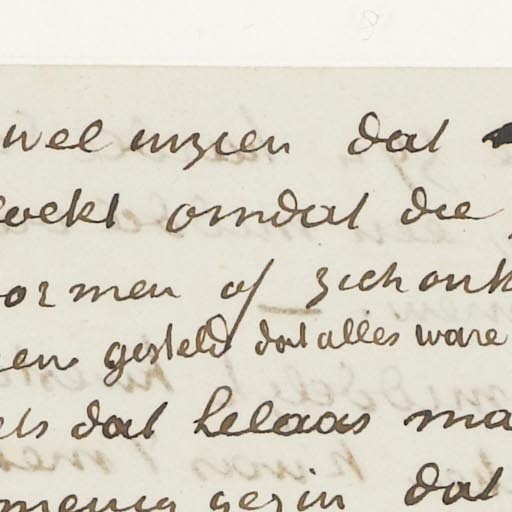 wel inzien dat
zoekt omdat die
vormen of zich ont
en gesteld dat alles ware
ets dat helaas ma
menig gezin dat